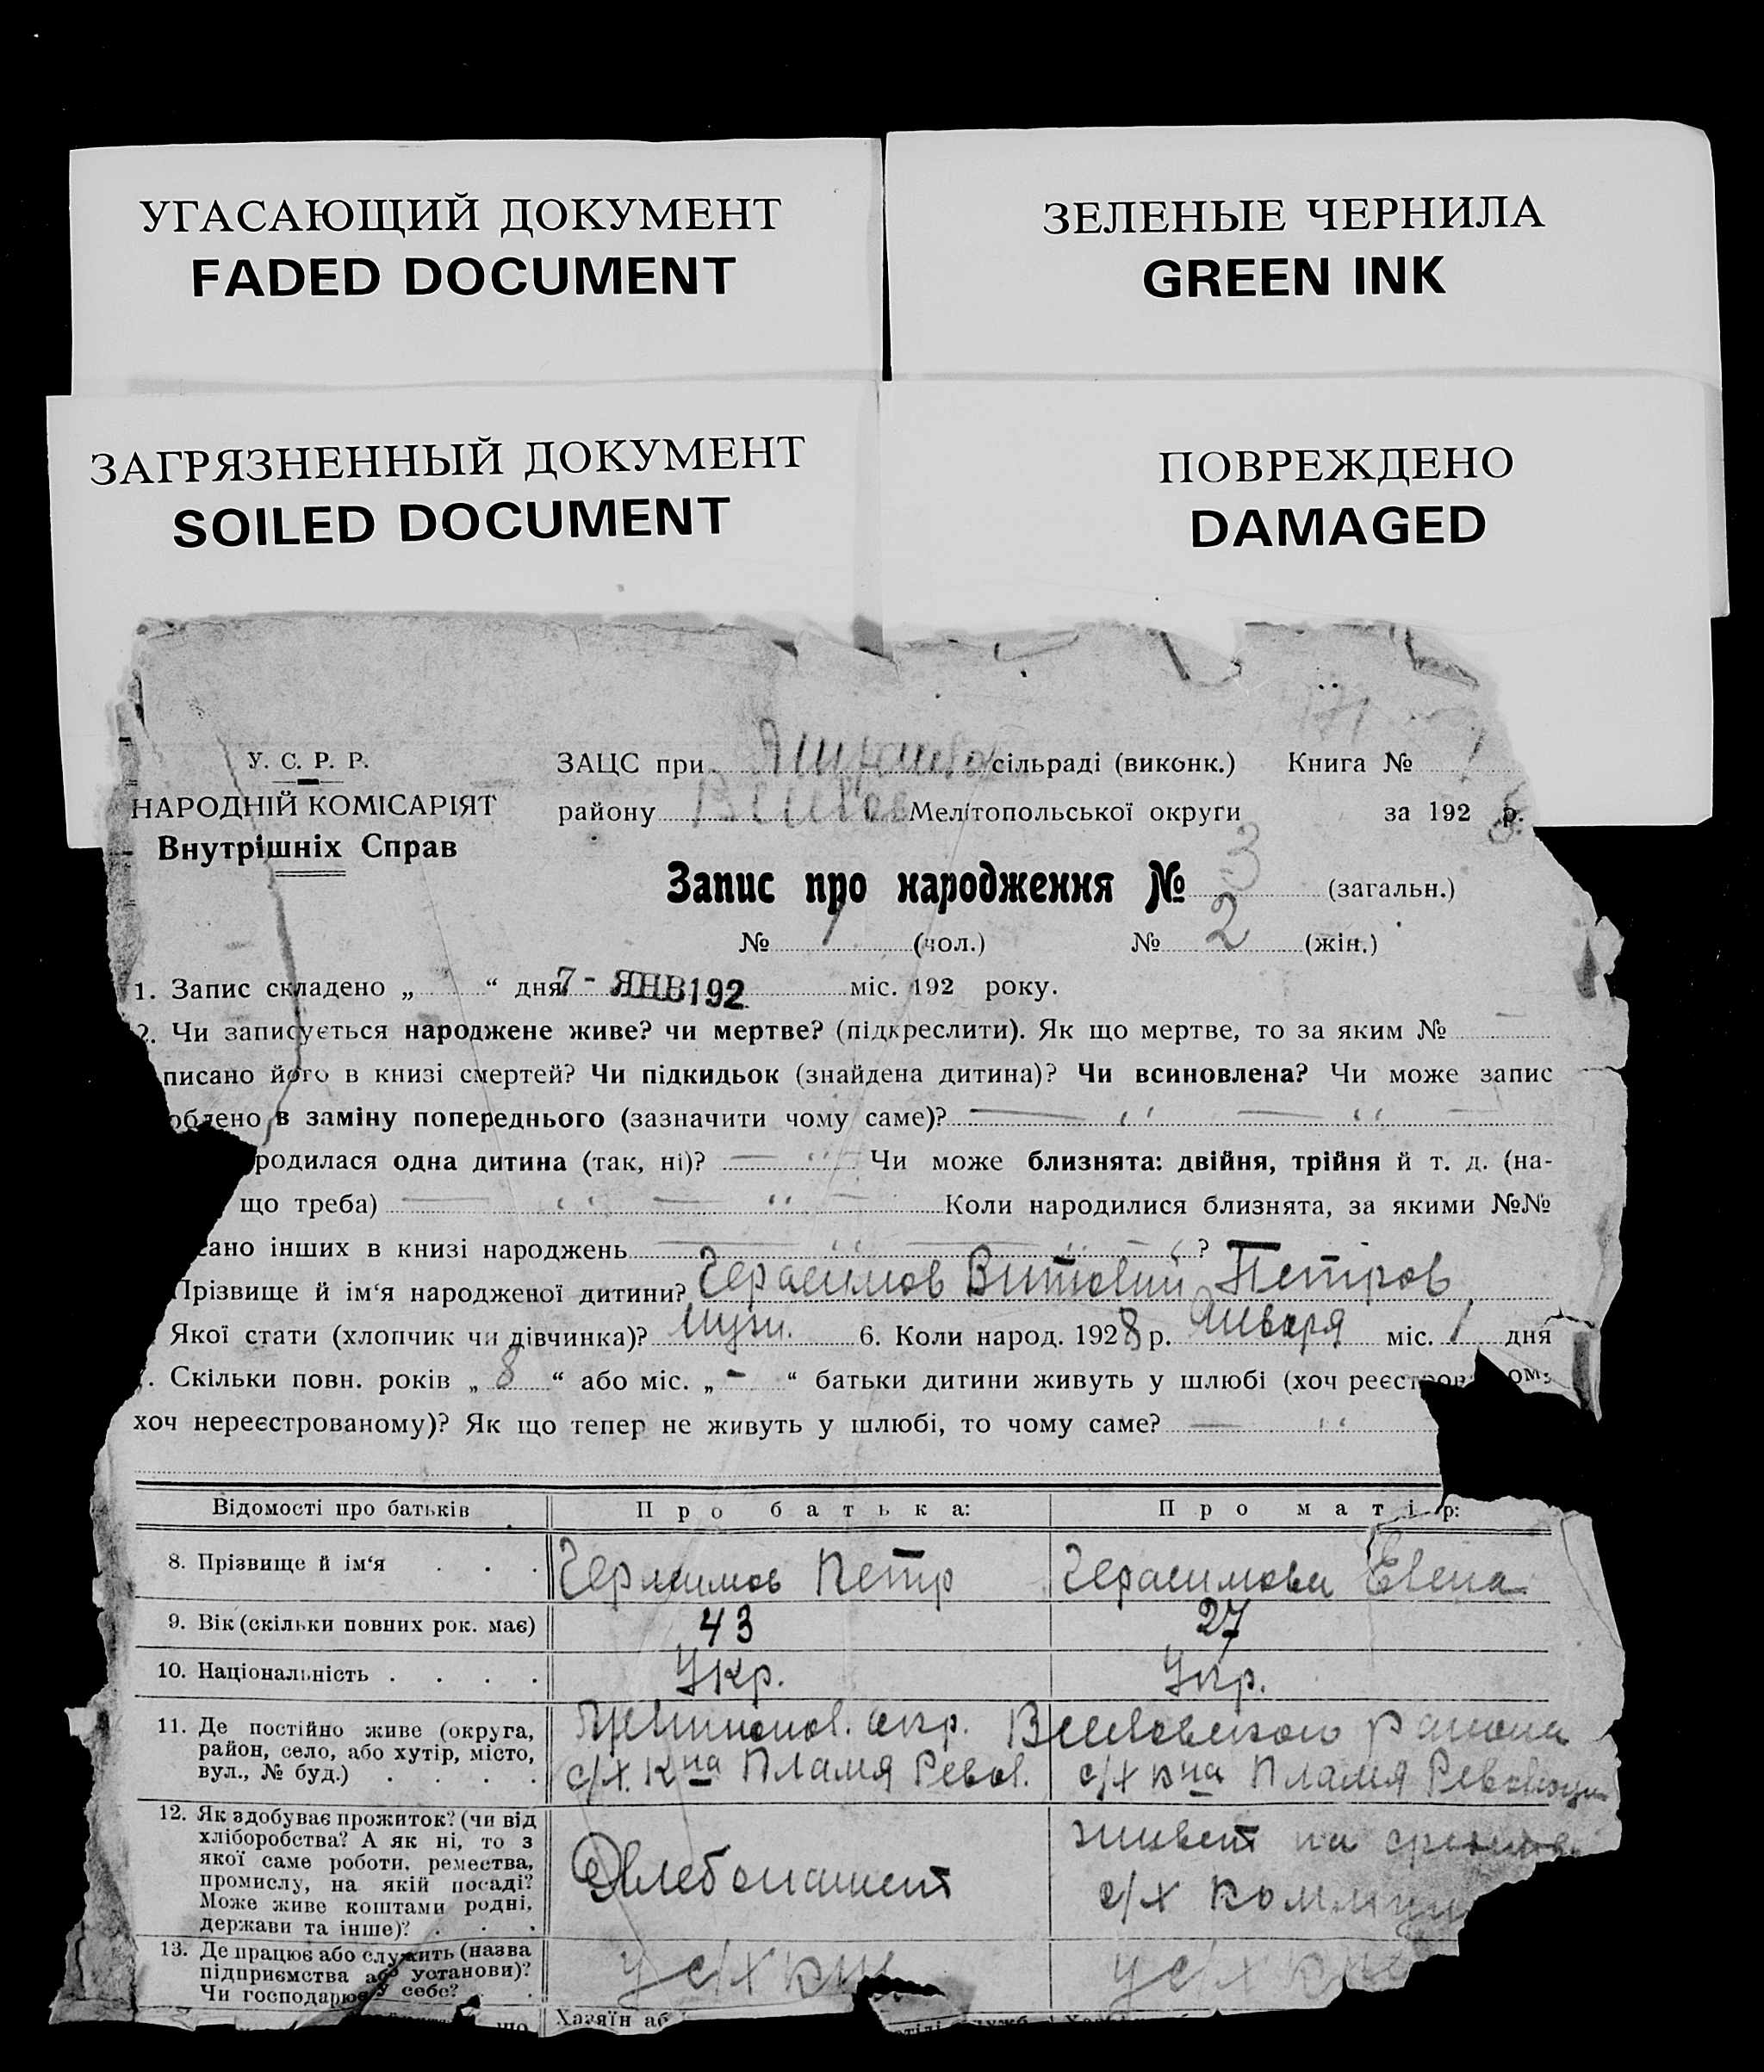 УГАСАЮЩИЙ ДОКУМЕНТ
FADED DOCUMENT
ЗЕЛЕНЫЕ ЧЕРНИЛА
GREEN INK
ЗАГРЯЗНЕННЫЙ ДОКУМЕНТ
SOILED DOCUMENT
ПОВРЕЖДЕНО
DAMAGED
У. С. Р. Р.
НАРОДНІЙ КОМІСАРІЯТ
Внутрішніх Справ
ЗАЦС при сільраді (виконк.) Книга № 1
району Мелітопольської округи за 1928 р.
Запис про народження № 3 (загальн.)
№ 1 (чол.) № 2 (жін.)
1. Запис складено „ “ дня 7 - ЯНВ 192 міс. 192 року.
2. Чи записується народжене живе? чи мертве? (підкреслити). Як що мертве, то за яким №
писано його в книзі смертей? Чи підкидьок (знайдена дитина)? Чи всиновлена? Чи може запис
облено в заміну попереднього (зазначити чому саме)? — “ — “ —
родилася одна дитина (так, ні)? — “ — Чи може близнята: двійня, трійня й т. д. (на-
що треба) — “ — “ — Коли народилися близнята, за якими №№
сано інших в книзі народжень — “ — “ — “ ?
Прізвище й ім‘я народженої дитини? Герасимов Виталий Петров
Якої стати (хлопчик чи дівчинка)? Мужч. 6. Коли народ. 1928 р. Января міс. 1 дня
. Скільки повн. років „ 8 “ або міс. „ - “ батьки дитини живуть у шлюбі (хоч реєстров ом:
хоч нереєстрованому)? Як що тепер не живуть у шлюбі, то чому саме? — “
Відомості про батьків Про батька: Про матір:
8. Прізвище й ім‘я . . . Герасимов Петр Герасимова Елена
9. Вік (скільки повних рок. має) 43 27
10. Національність . . . . Укр. Укр.
11. Де постійно живе (округа,
район, село, або хутір, місто,
вул., № буд.) . . . .
окр. района
с/х. кна ПламяРевол. с/х кна Пламя Революции
12. Як здобуває прожиток? (чи від
хліборобства? А як ні, то з
якої саме роботи, ремества,
промислу, на якій посаді?
Може живе коштами родні,
держави та інше)? . . .
Хлебопашест
живет на
с/х коммуны
13. Де працює або служить (назва
підприємства або установи)?
Чи господарює у себе? . .
у с/х кне у с/х кне
що Хазяїн аб